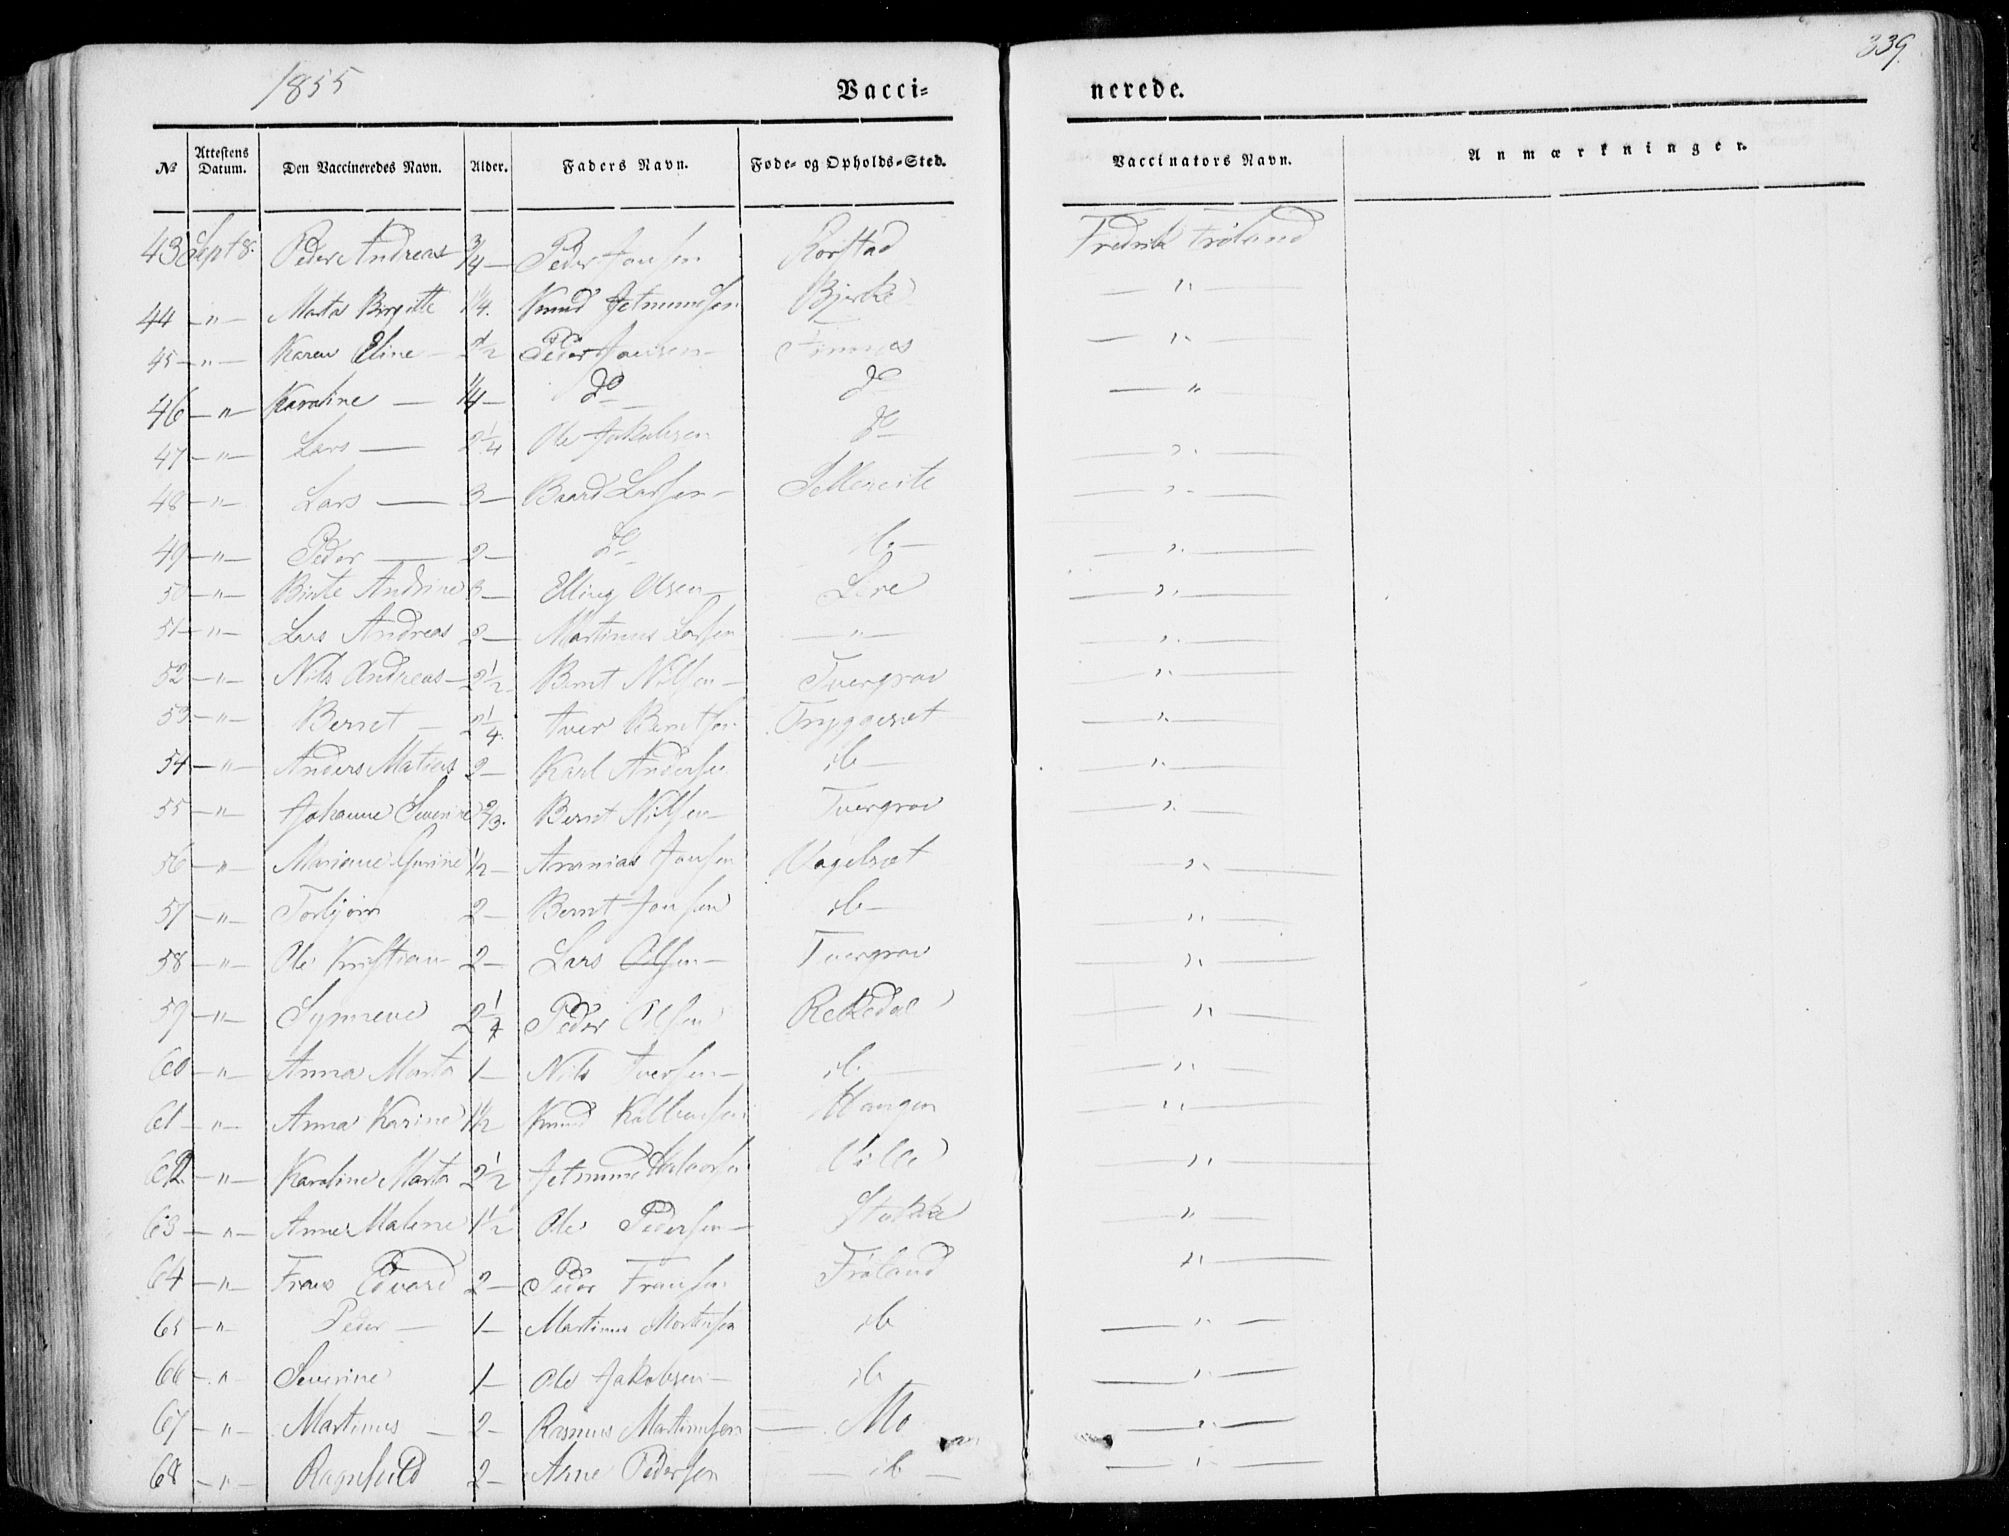 1855 Vacci- nerede. 339.
No Attestens Datum. Den Vaccineredes Navn. Alder. Faders Navn. Føde- og Opholds-Sted. Vaccinators Navn. Anmærkninger.
43 Sept 8. Peder Andreas 3/4 — Peder Jonsen Korstad Fredrik Frøland
44 — " — Marta Birgitte 1/4. Knud Jetmundsen Bjerke — " —
45 — " — Karen Eline — 2 1/2 Peder Jonsen — — " —
46 — " — Karoline — 1/4 — do do — " —
47 — " — Lars — 2 1/4 Ole Jakobsen do — " —
48 — " — Lars — 3 — Baard Larsen — Sellereite — " —
49 — " — Peder — 2 — do ib — — " —
50 — " — Binte Andrine 3 — Elling Olsen — Løre — " —
51 — " — Lars Andreas 2 — Martinus Larsen — " — — " —
52 — " — Nils Andreas — 2 1/2 Bernt Nilsen — Tvergrov — " —
53 — " — Bernt — 2 1/4. Iver Berntsen Tryggeset — " —
54 — " — Anders Matias 2 — Karl Andersen ib — — " —
55 — " — Johanne Severine 2/3. Bernt Nilsen — Tvergrov — " —
56 — " — Mariane 1/2 — Ananias Jonsen Vagelsæt — " —
57 — " — Torbjørn 2 — Bernt Jonsen ib — — " —
58 — " — Ole Kristian 2 — Lars Olsen — Tvergrov — " —
59 — " — Synneve 2 1/4 Peder Olsen Rekkedal — " —
60 — " — Anna Marta 1 — Nils Iversen — ib. — — " —
61 — " — Anna Karine 1 1/2 Knud Kolbensen Haugen — " —
62 — " — Karoline Marta 2 1/2 Jetmund Halvorsen Ville — " —
63 — " — Anne Malene 1 1/2 Ole Pedersen — Stokke — " —
64 — " — Frans Edvard 2 — Peder Fransen Frøland — " —
65 — " — Peder — 1 — Martinus Mortensen ib — " —
66 — " — Severine 1 — Ole Jakobsen — ib — " —
67 — " — Martinus — 2 — Rasmus Martinusen — Mo — " —
68 — " — Ragnhild 2 — Arne Pedersen — ib — — " —